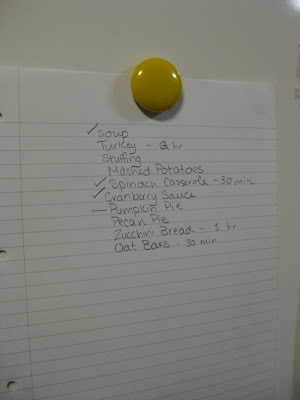 ✓ Soup
Turkey - 2 hr
Stuffing
Mashed Potatoes
✓ Spinach Casserole - 30 min
✓ Cranberry Sauce
— Pumpkin Pie
Pecan Pie
Zucchini Bread - 1 hr
Oat Bars - 30 min